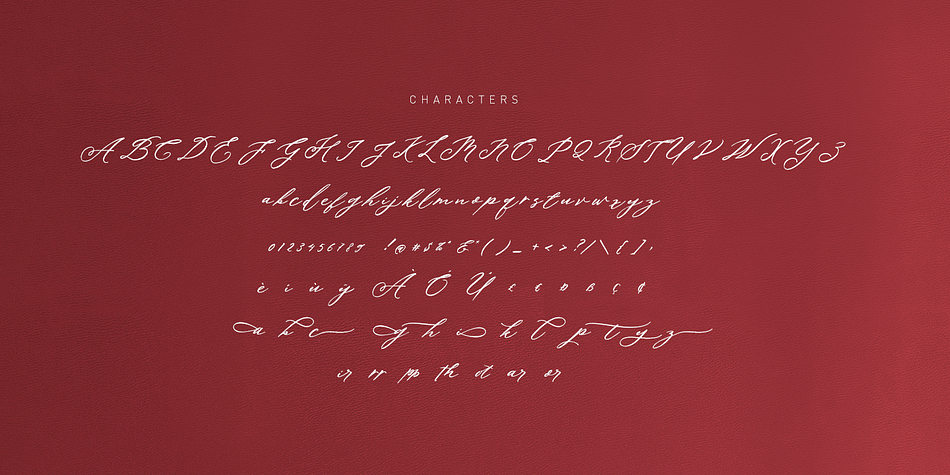 CHARACTERS
A B C D E F G H I J K L M N O P Q R S T U V W X Y Z
a b c d e f g h i j k l m n o p q r s t u v w x y z
0 1 2 3 4 5 6 7 8 9 ! @ # $ % & ( ) _ + < > ? / \ [ ] ,
è i ù ÿ À Ò Ù
a b c g h i k l p t y z
ir rr pp th ot ar or